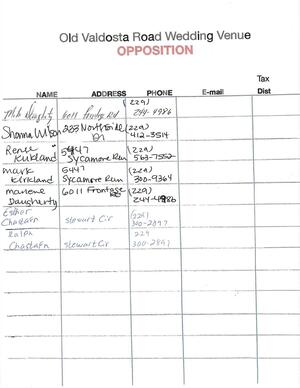 Old Valdosta Road Wedding Venue
OPPOSITION
Tax
NAME ADDRESS PHONE E-mail Dist
6011 Rd (229) 244-4986
Shanna Wilson 223 Northside Dr (229) 412-3514
Renee Kirkland 5447 Sycamore Run (229) 563-7552
Mark Kirkland 5447 Sycamore Run (229) 300-9364
Marlene Daugherty 6011 Frontage Rd (229) 244-4986
Esther Chastain Stewart Cir (229) 300-2897
Ralph Chastain Stewart Cir 229 300-2891